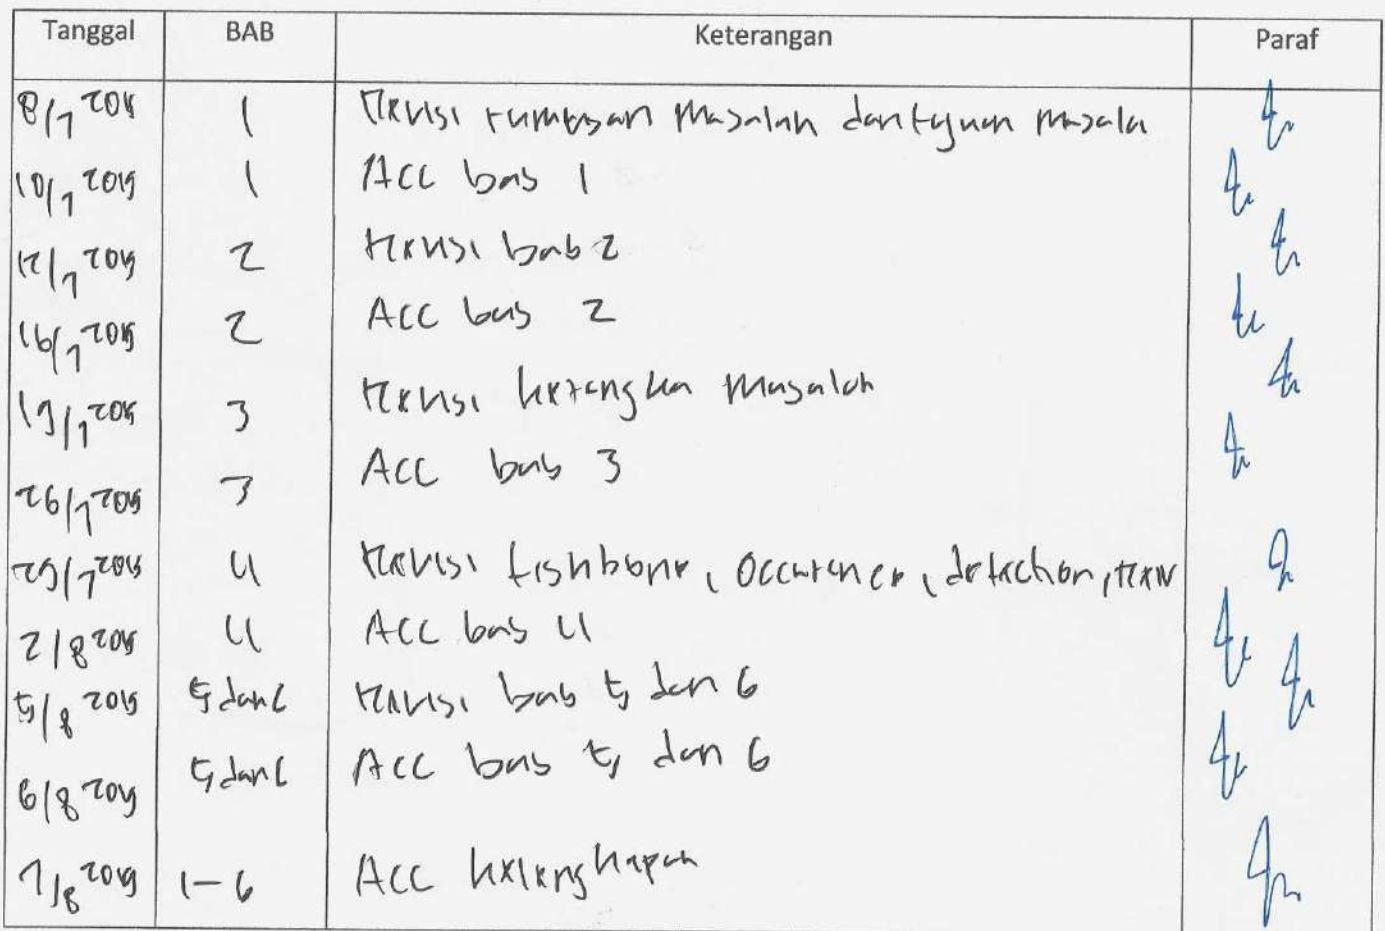 Tanggal BAB Keterangan Paraf
8/7 2019 1 Revisi rumusan masalah dan tujuan masala
10/7 2019 1 ACC bab 1
12/7 2019 2 Revisi bab 2
16/7 2019 2 ACC bab 2
19/7 2019 3 Revisi kerangka masalah
26/7 2019 3 ACC bab 3
29/7 2019 4 Revisi fishbone, occurence, detection,
2/8 2019 4 ACC bab 4
5/8 2019 5 dan 6 Revisi bab 5 dan 6
6/8 2019 5 dan 6 ACC bab 5 dan 6
7/8 2019 1-6 ACC kelengkapan